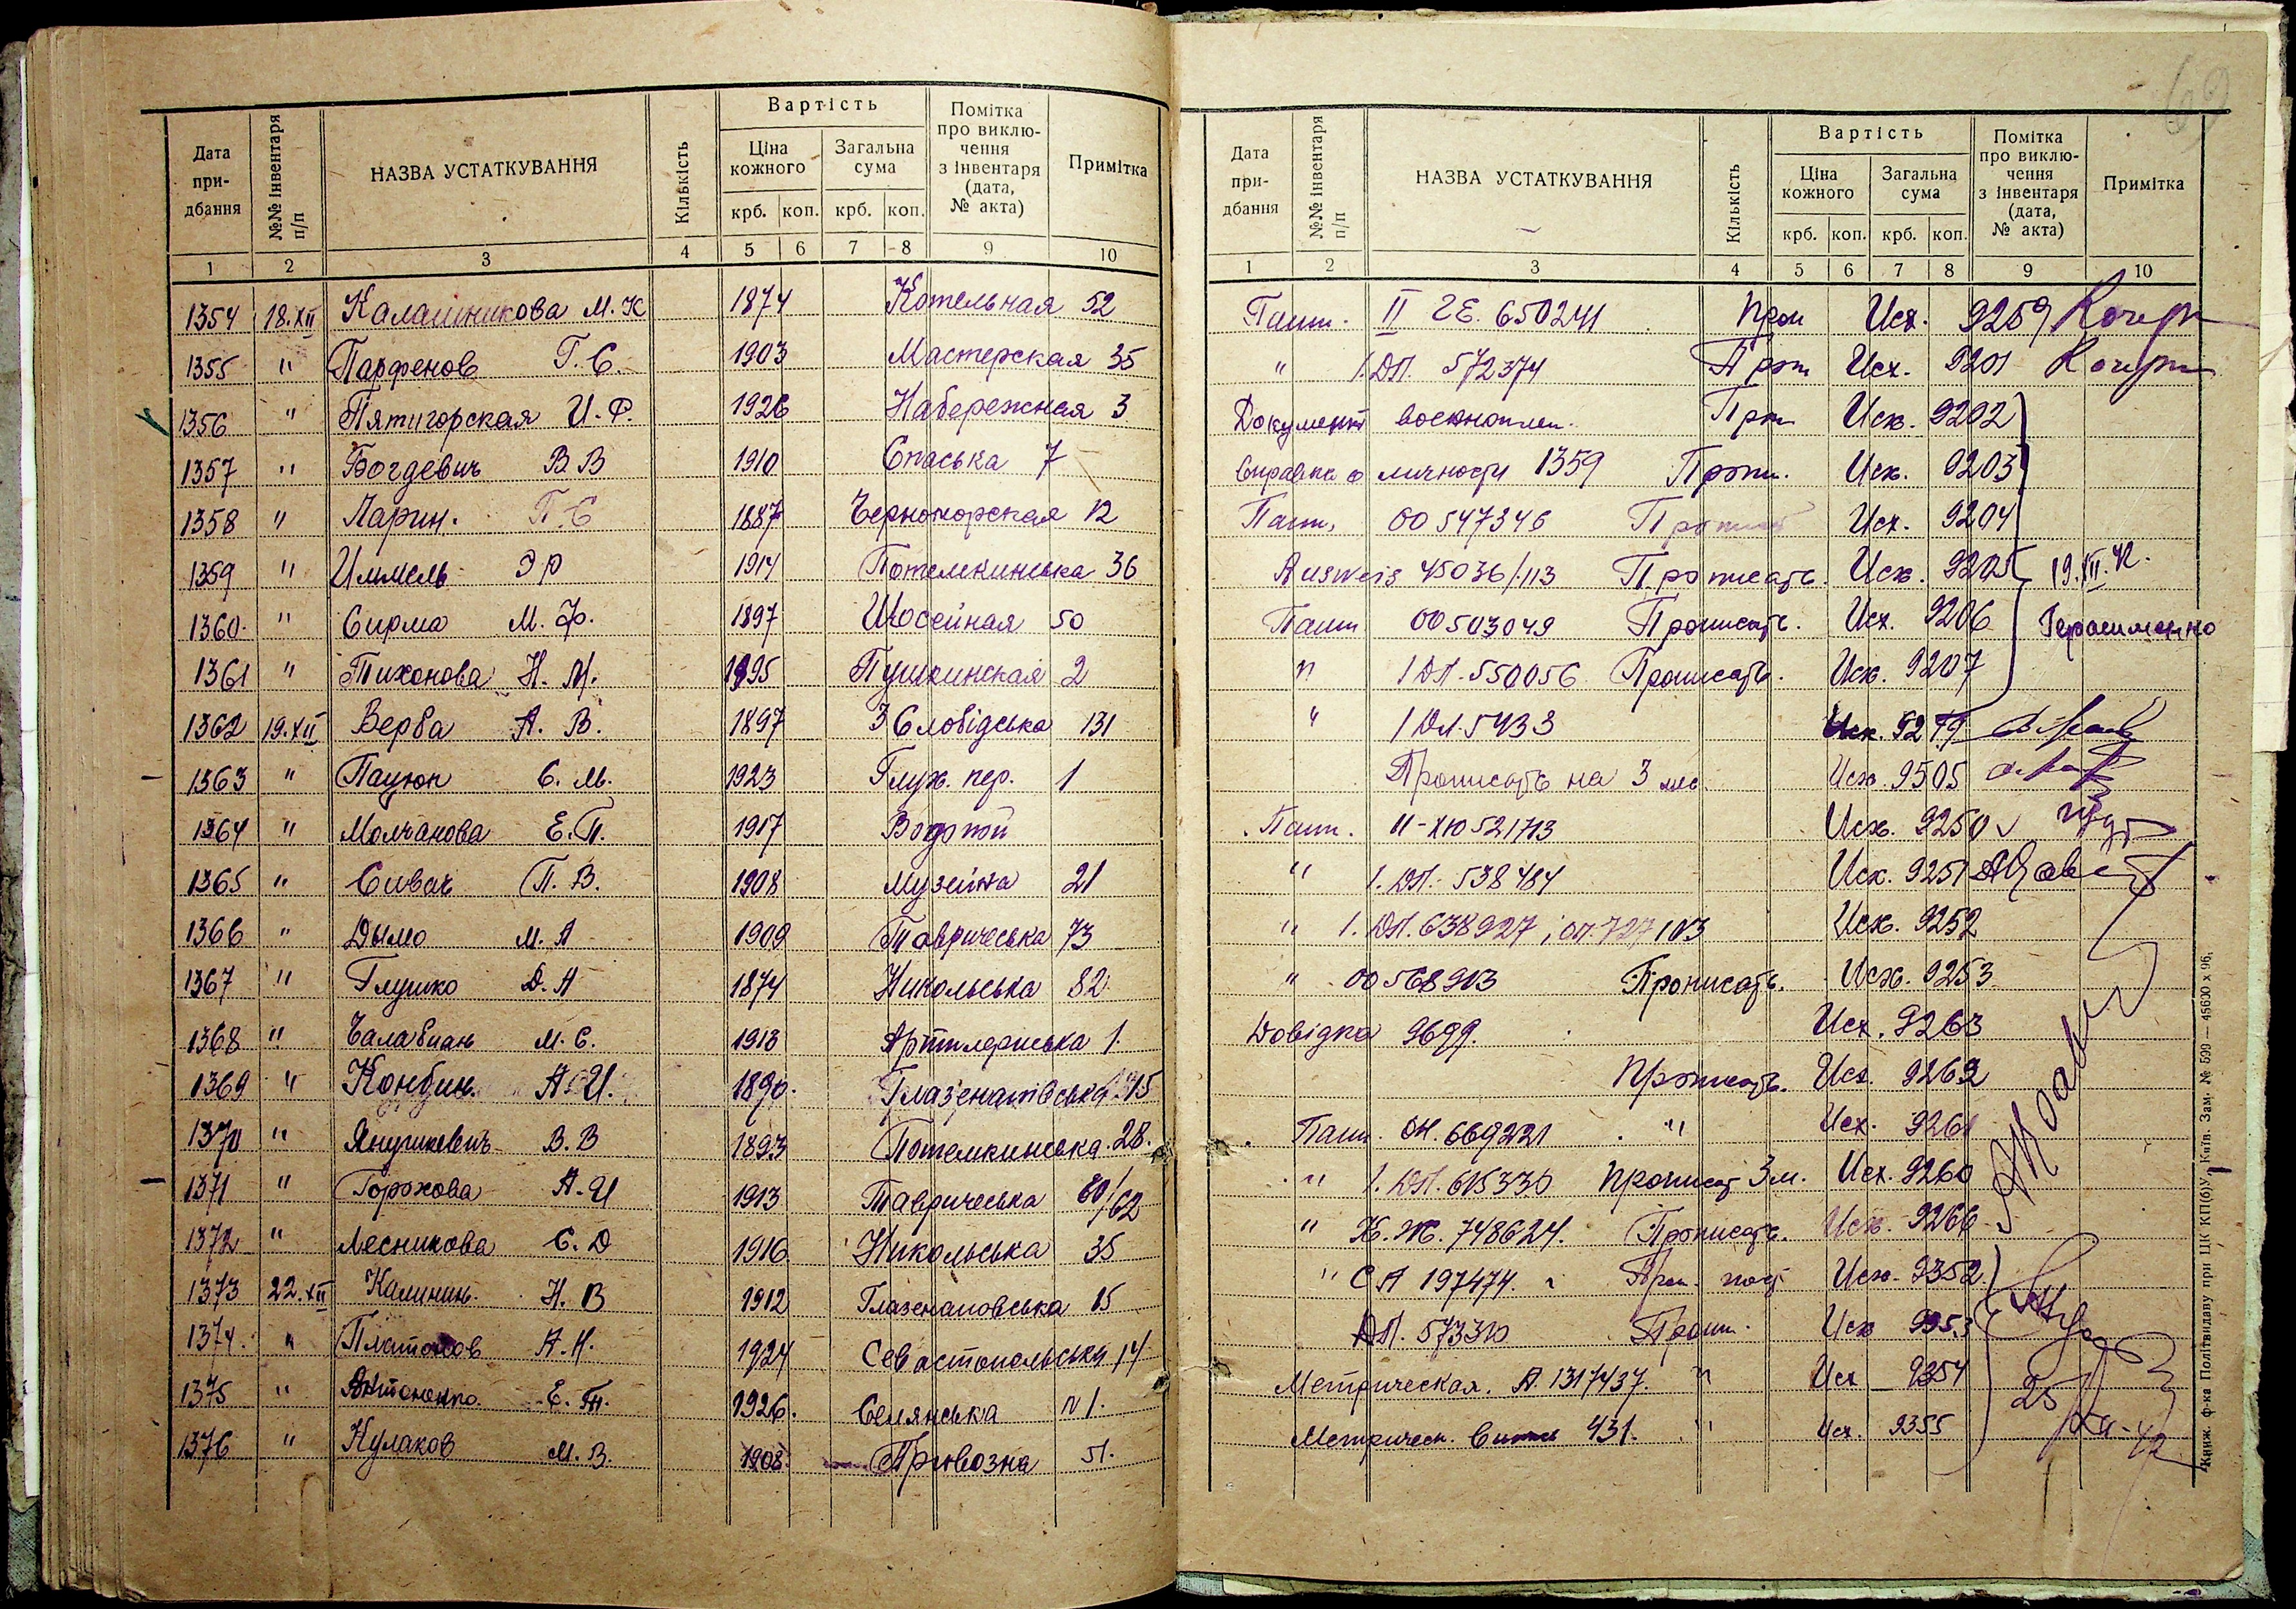 Дата при-дбання №№ інвентаря п/п НАЗВА УСТАТКУВАННЯ Кількість Вартість Ціна кожного крб. коп. Загальна сума крб. коп. Помітка про виклю-чення з інвентаря (дата, № акта) Примітка
1 2 3 4 5 6 7 8 9 10
1354 18.XII Калашникова М. К 1874 Котельная 52
1355 " Парфенов Г. С. 1903 Мастерская 35
1356 " Пятигорская И. Ф. 1926 Набережная 3
1357 " Богдевич В В 1910 Спаська 7
1358 " Ларин. П. С 1887 Черноморская 12
1359 " Иммель Э Р 1914 Потемкинська 36
1360 " Сирма М. Ф. 1897 Шоссейная 50
1361 " Тихонова Н. М. 1895 Пушкинская 2
1362 19.XII Верба А. В. 1897 3 Слобідська 131
1363 " Пацюк С. М. 1923 Глух. пер. 1
1364 " Молчанова Е. П. 1917 Водопой
1365 " Сивач П. В. 1908 Музейна 21
1366 " Дымо М. А 1909 Тавричеська 73
1367 " Глушко Д. А 1874 Никольська 82
1368 " Чалабиан М. С. 1913 Артилериська 1.
1369 " А. И. 1890. 15
1370 " Янушкевич В. В 1893 Потемкинська. 28.
1371 " Горохова А. И 1913 Тавричеська 60/62
1372 " Лесникова С. Д 1916 Никольська 35
1373 22.XII Калинин. Н. В 1912 Глазенаповська 15
1374. " Платонов А. Н. 1924 Севастопольська 14
1375 " Антоненко. Е. 1926. Селянська N 1.
1376 " Кулаков М. В. 1908. Привозна 51.
Дата при-дбання №№ інвентаря п/п НАЗВА УСТАТКУВАННЯ Кількість Вартість Ціна кожного крб. коп. Загальна сума крб. коп. Помітка про виклю-чення з інвентаря (дата, № акта) Примітка
1 2 3 4 5 6 7 8 9 10
Пашп. II ЧЕ. 650241 Проп Исх. 9259
" I. ДП. 572374 Проп Исх. 9201
Документ военноплен. Проп Исх. 9202
Справка о личности 1359 Проп. Исх. 9203
Пашп. 00 547346 Исх. 9204
Ausweis 45036/113 Прописать. Исх. 9205 19.XII.42.
Пашп 00 503049 Прописать. Исх. 9206 Герасименко
" I ДП. 550056 Прописать. Исх. 9207
" I ДП. 5433 Исх.
Прописать на 3 мес. Исх. 9505
Пашп. II-ХЮ 521713 Исх. 9250
" I. ДП. 538484 Исх. 9251
" I. ДП. 638927 Исх. 9252
" 00 568903 Прописать. Исх. 9253
Довідка 9699. Исх. 9263
Прописать. Исх. 9262
Пашп. 669221 " Исх. 9261
" I. ДП. 615330 Прописат 3 м. Исх. 9260
" К. Ж. 748624. Прописать. Исх. 9266
" С А 197474. Проп. Исх. 9352
ДП. 573310 Проп. Исх 9353
Метрическая. А. 1317437. " Исх 9354
Метрическ. 431. " Исх. 9355
69
Книж. ф-ка Політвидаву при ЦК КП(б)У, Київ. Зам. № 599 — 45600 х 96.